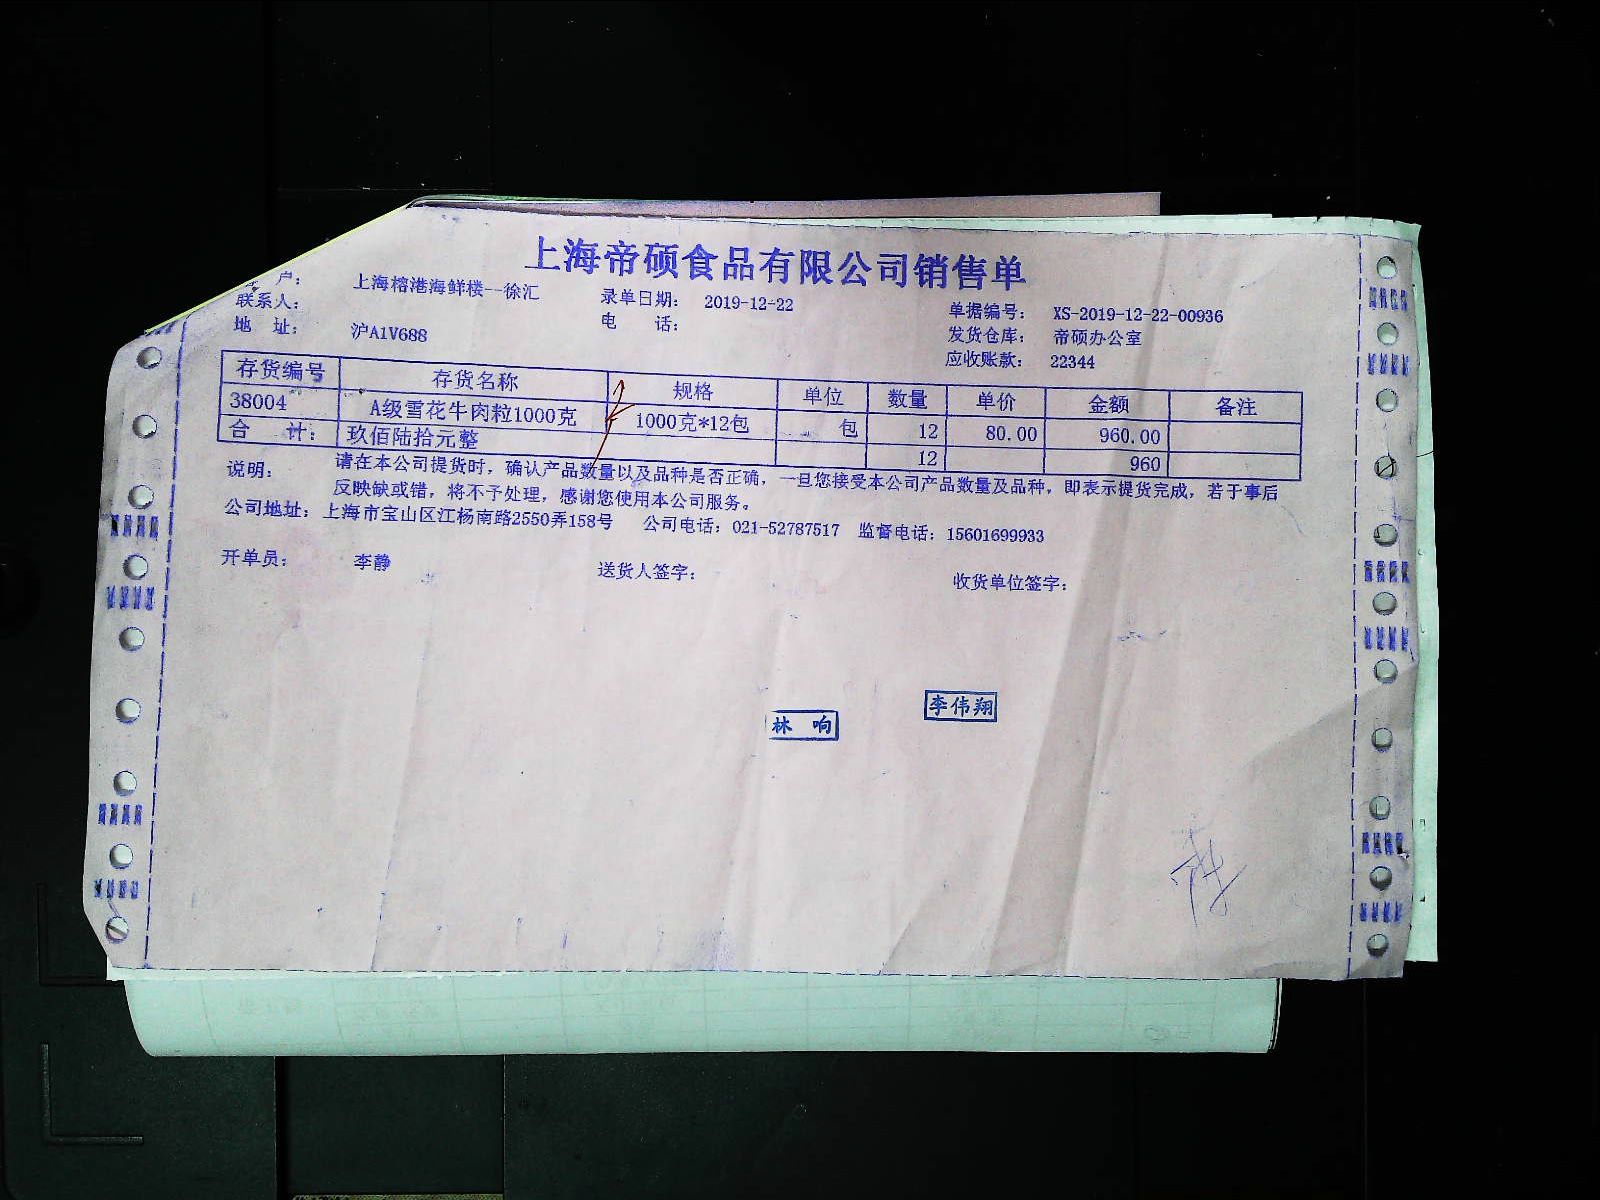 上海帝硕食品有限公司销售单
户： 上海榕港海鲜楼--徐汇 录单日期： 2019-12-22 单据编号： XS-2019-12-22-00936
联系人： 电 话： 发货仓库： 帝硕办公室
地 址： 沪A1V688 应收账款： 22344
存货编号 存货名称 规格 单位 数量 单价 金额 备注
38004 A级雪花牛肉粒1000克 1000克*12包 包 12 80.00 960.00
合 计： 玖佰陆拾元整 12 960
说明： 请在本公司提货时，确认产品数量以及品种是否正确，一旦您接受本公司产品数量及品种，即表示提货完成，若于事后
反映缺或错，将不予处理，感谢您使用本公司服务。
公司地址：上海市宝山区江杨南路2550弄158号 公司电话：021-52787517 监督电话：15601699933
开单员： 李静 送货人签字： 收货单位签字：
李伟翔
林 响